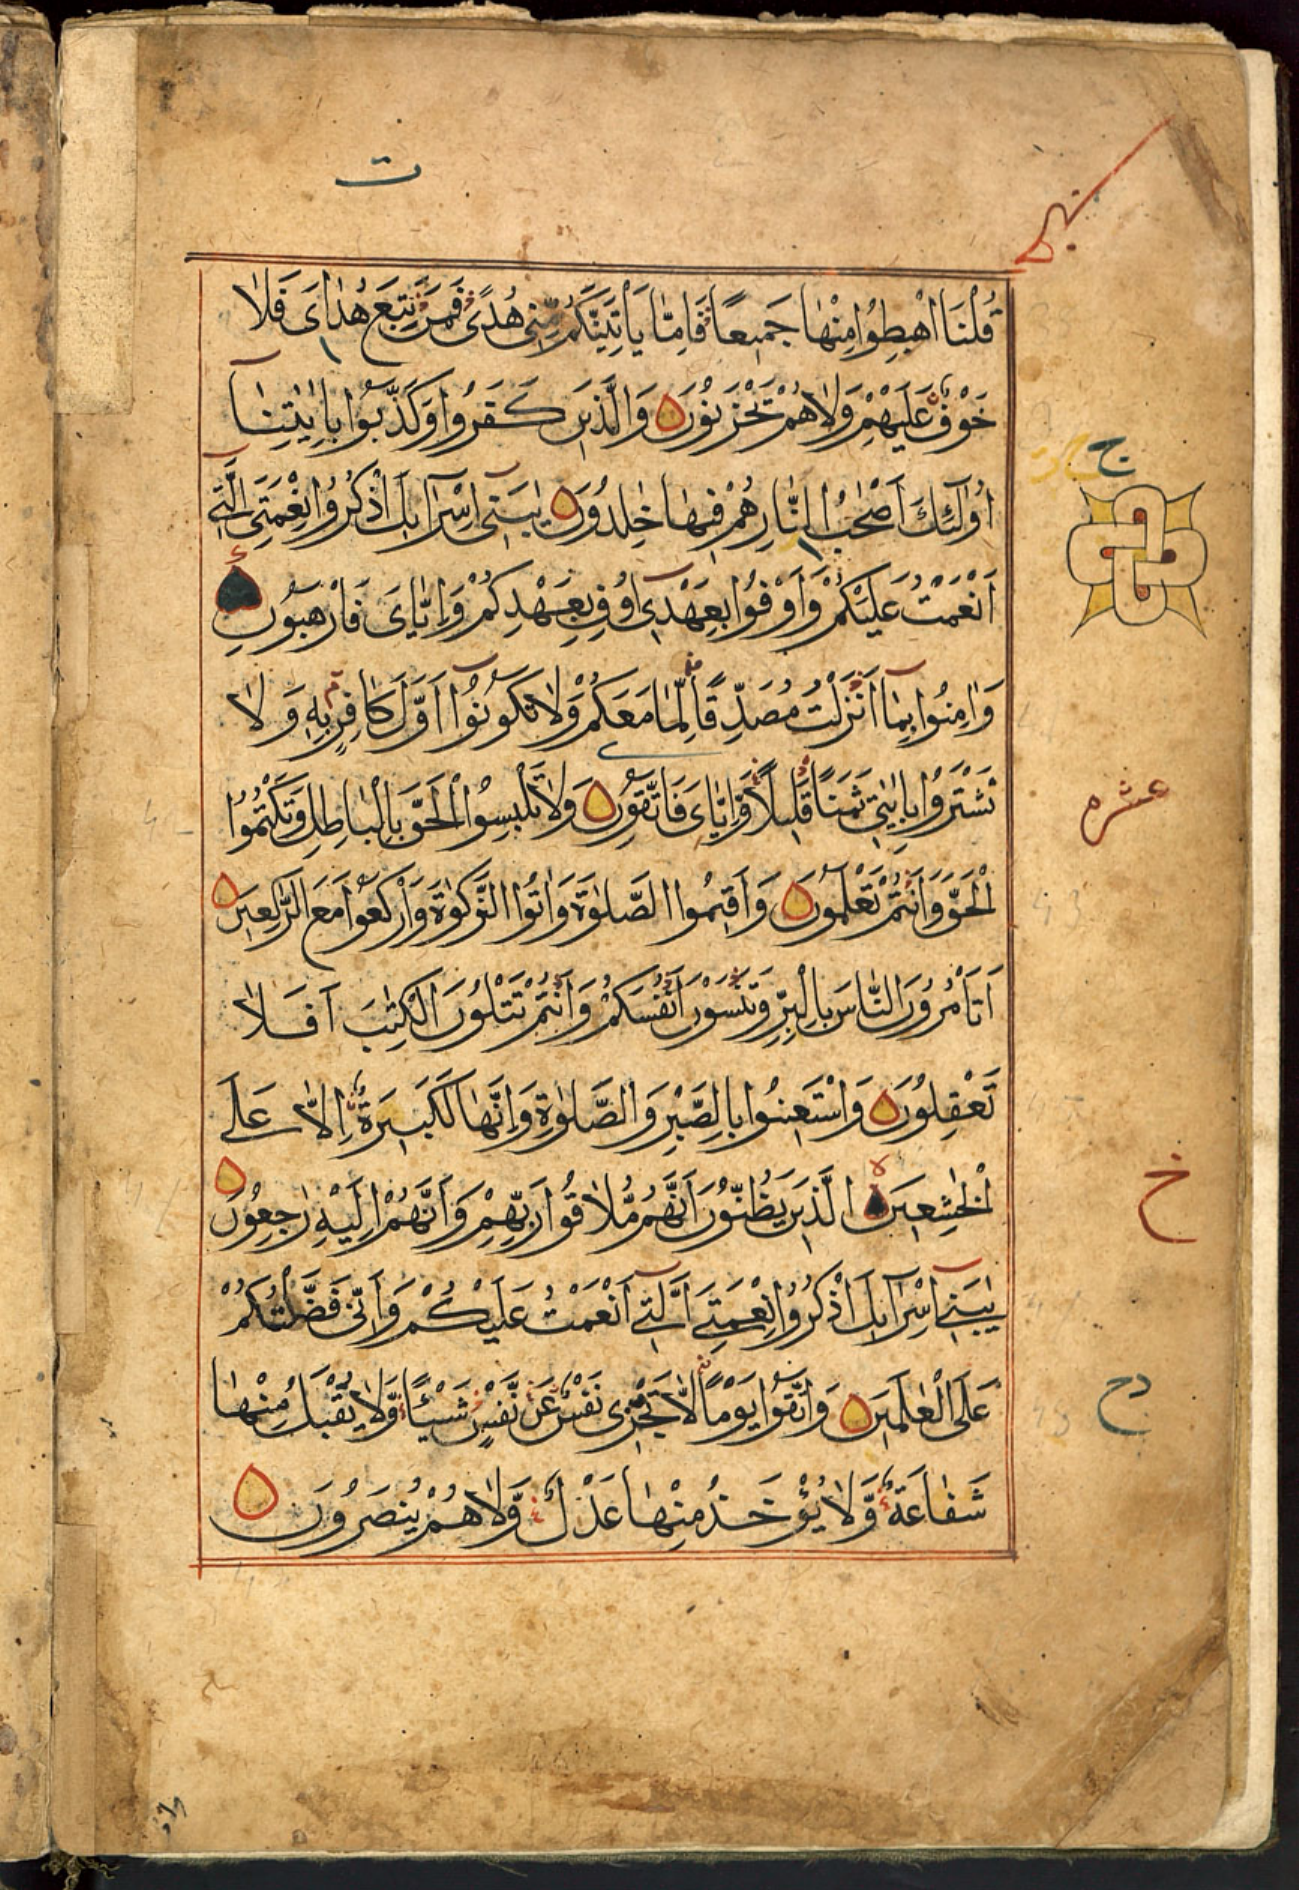 ت
قُلْنَا اهْبِطُوا مِنْهَا جَمِيعًا فَاِمَّا يَاْتِيَنَّكُمْ مِنِّي هُدًى فَمَنْ تَبِعَ هُدَايَ فَلَا
خَوْفٌ عَلَيْهِمْ وَلَا هُمْ يَحْزَنُونَ وَالَّذِينَ كَفَرُوا وَكَذَّبُوا بِاٰيٰتِنَا
ج
اُولٰٓئِكَ اَصْحٰبُ النَّارِ هُمْ فِيهَا خٰلِدُونَ يٰبَنِيٓ اِسْرَآئِيلَ اذْكُرُوا نِعْمَتِيَ الَّتِيٓ
اَنْعَمْتُ عَلَيْكُمْ وَاَوْفُوا بِعَهْدِيٓ اُوفِ بِعَهْدِكُمْ وَاِيَّايَ فَارْهَبُونِ
وَاٰمِنُوا بِمَآ اَنْزَلْتُ مُصَدِّقًا لِّمَا مَعَكُمْ وَلَا تَكُونُوٓا اَوَّلَ كَافِرٍ بِهٖ وَلَا
تَشْتَرُوا بِاٰيٰتِي ثَمَنًا قَلِيلًا وَّاِيَّايَ فَاتَّقُونِ وَلَا تَلْبِسُوا الْحَقَّ بِالْبَاطِلِ وَتَكْتُمُوا
عشره
الْحَقَّ وَاَنْتُمْ تَعْلَمُونَ وَاَقِيمُوا الصَّلٰوةَ وَاٰتُوا الزَّكٰوةَ وَارْكَعُوا مَعَ الرّٰكِعِينَ
اَتَاْمُرُونَ النَّاسَ بِالْبِرِّ وَتَنْسَوْنَ اَنْفُسَكُمْ وَاَنْتُمْ تَتْلُونَ الْكِتٰبَ اَفَلَا
تَعْقِلُونَ وَاسْتَعِينُوا بِالصَّبْرِ وَالصَّلٰوةِ وَاِنَّهَا لَكَبِيرَةٌ اِلَّا عَلَى
الْخٰشِعِينَ الَّذِينَ يَظُنُّونَ اَنَّهُمْ مُّلَاقُوا رَبِّهِمْ وَاَنَّهُمْ اِلَيْهِ رٰجِعُونَ
خ
يٰبَنِيٓ اِسْرَآئِيلَ اذْكُرُوا نِعْمَتِيَ الَّتِيٓ اَنْعَمْتُ عَلَيْكُمْ وَاَنِّي فَضَّلْتُكُمْ
عَلَى الْعٰلَمِينَ وَاتَّقُوا يَوْمًا لَّا تَجْزِي نَفْسٌ عَنْ نَّفْسٍ شَيْئًا وَّلَا يُقْبَلُ مِنْهَا
شَفَاعَةٌ وَّلَا يُؤْخَذُ مِنْهَا عَدْلٌ وَّلَا هُمْ يُنْصَرُونَ